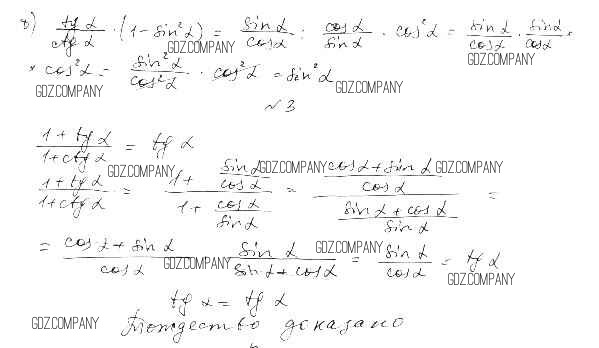 в) tg α / ctg α · (1 − sin² α) = sin α / cos α : cos α / sin α · cos² α = sin α / cos α · sin α / cos α ×
× cos² α = sin² α / cos² α · cos² α = sin² α
GDZ.COMPANY GDZ.COMPANY GDZ.COMPANY
GDZ.COMPANY GDZ.COMPANY GDZ.COMPANY
№ 3
(1 + tg α) / (1 + ctg α) = tg α
GDZ.COMPANY GDZ.COMPANY GDZ.COMPANY
(1 + tg α) / (1 + ctg α) = (1 + sin α / cos α) / (1 + cos α / sin α) = ((cos α + sin α) / cos α) / ((sin α + cos α) / sin α) =
= (cos α + sin α) / cos α · sin α / (sin α + cos α) = sin α / cos α = tg α
GDZ.COMPANY GDZ.COMPANY GDZ.COMPANY
tg α = tg α
GDZ.COMPANY Тождество доказано